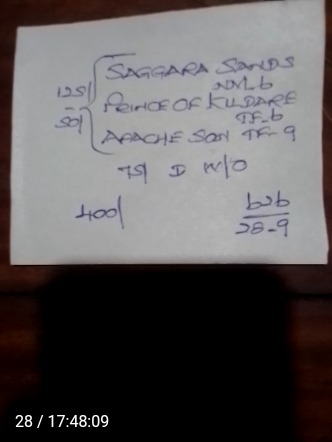 SAGGARA SANDS
NM-6
125/
-
50/
PRINCE OF KILDARE
TF-6
APACHE SON TF-9
75/ D W/O
400/
b2b
28-9
28 / 17:48:09